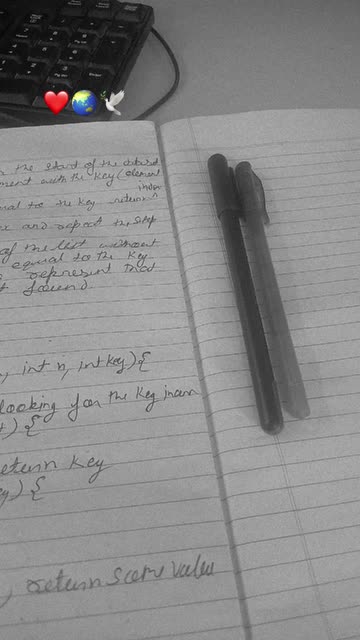 the start of the
ment with the key (element
index
equal to the key return
and repeat the step
of the list without
equal to the key
represent that
found
, int n, int key) {
looking for the key in an
) {
return key
) {
return same value